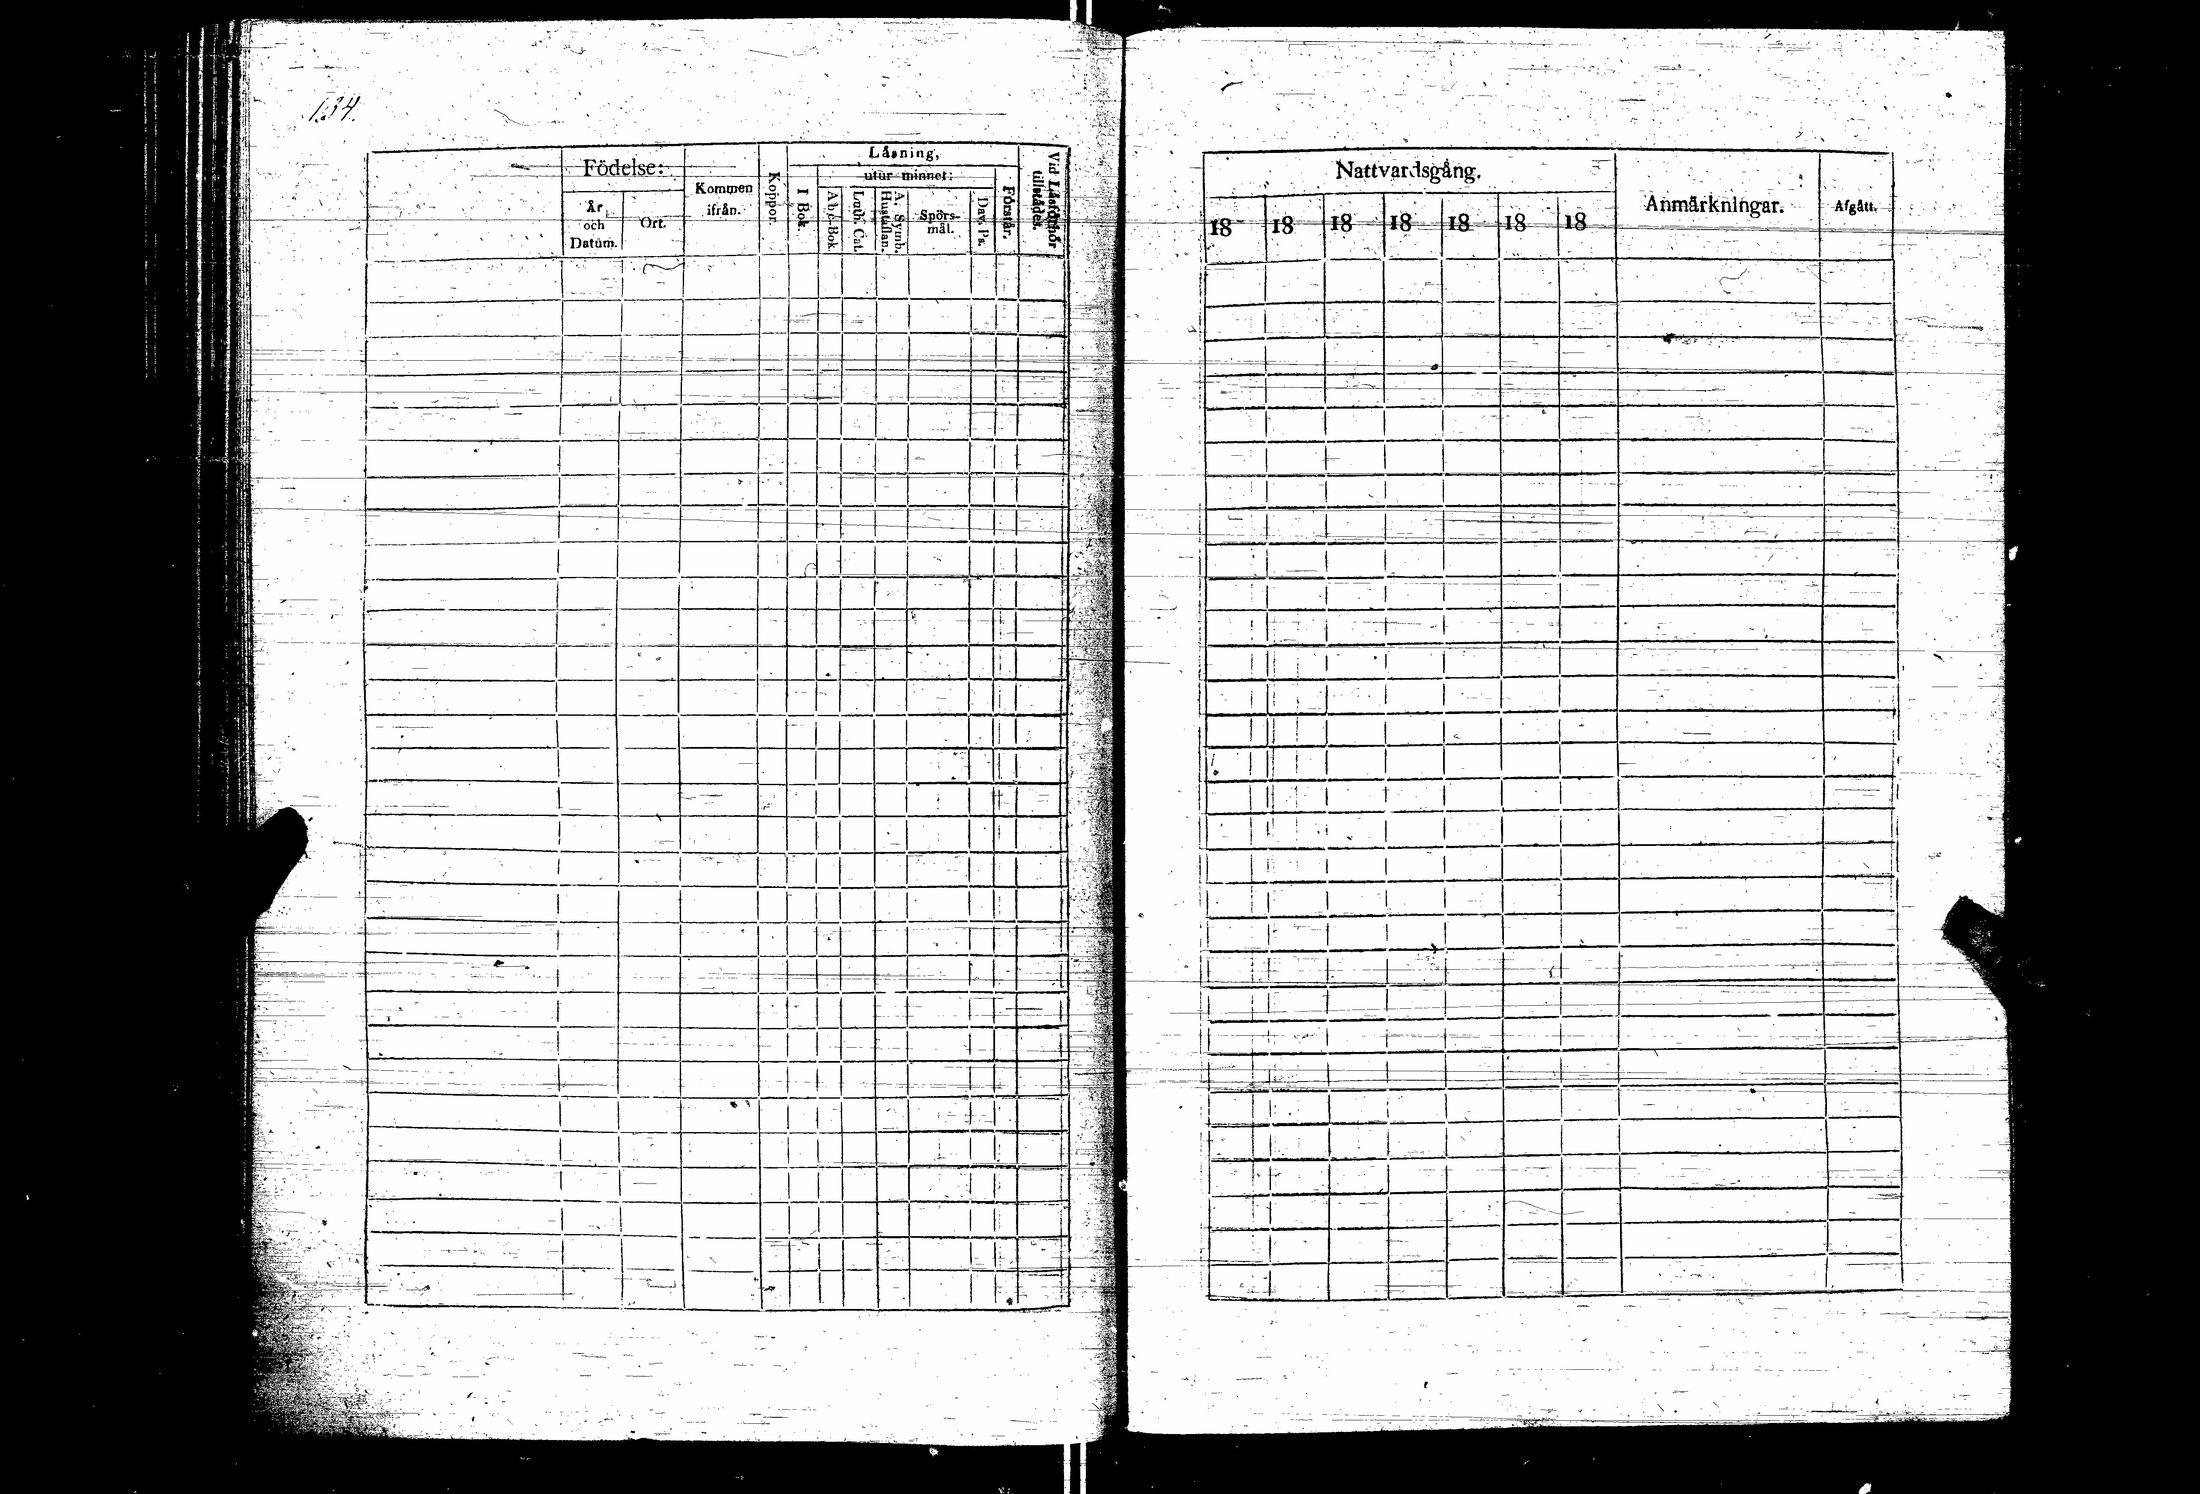 134.
Födelse:
År
och
Datum.
Ort.
Kommen
ifrån.
Koppor.
Läsning,
I Bok.
utur minnet:
Abc-Bok.
Luth. Cat.
A. Symb.
Hustaflan.
Spörs-
mål.
Dav. Ps.
Förstår.
Vid Läsförhör
tillstädes.
Nattvardsgång.
18 18 18 18 18 18 18
Anmärkningar.
Afgått.